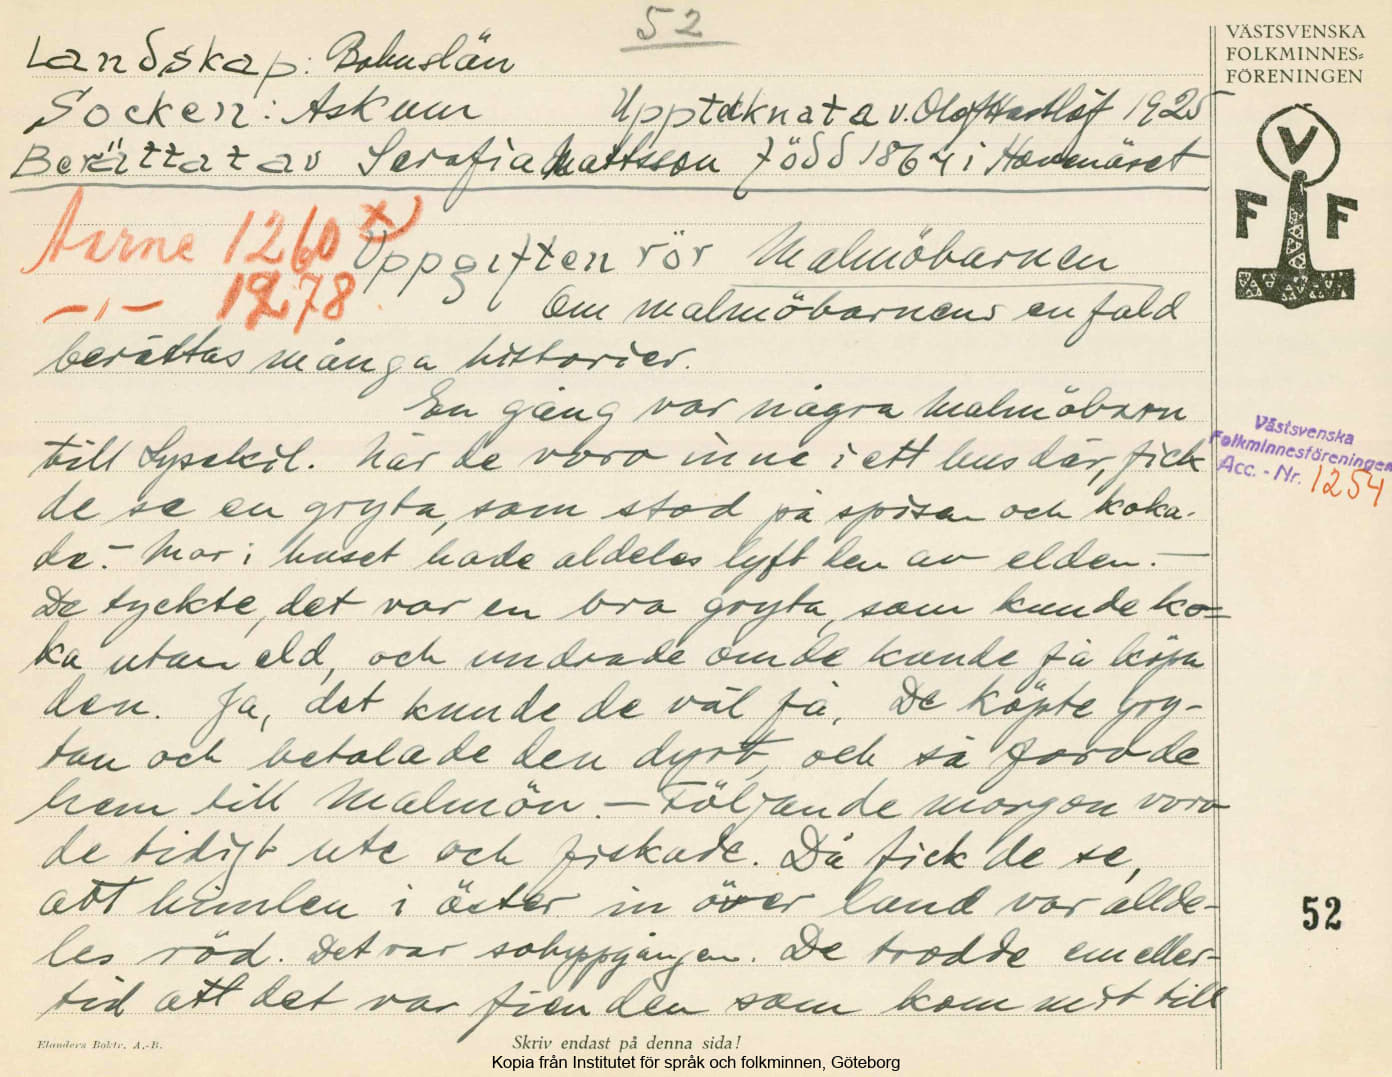 52
VÄSTSVENSKA
FOLKMINNES-
FÖRENINGEN
Landskap: Bohuslän
Socken: Askum Upptecknat av. Olof Hasslöf 1925
Berättat av Serafia Mattsson född 1864 i Hovenäset
V
F F
Aarne 1260 x) Uppgiften rör Malmöbarnen
–"– 1278
Om malmöbarnens enfald
berättas många historier.
En gång var några Malmöbarn
till Lysekil. När de voro inne i ett hus där, fick
de se en gryta, som stod på spisen och koka-
de. – Mor i huset hade aldeles lyft den av elden. –
De tyckte, det var en bra gryta, som kunde ko-
ka utan eld, och undrade om de kunde få köpa
den. Ja, det kunde de väl få. De köpte gry-
tan och betalade den dyrt, och så foro de
hem till Malmön. – Följande morgon voro
de tidigt ute och fiskade. Då fick de se,
att himlen i öster in över land var allde-
les röd. Det var soluppgången. De trodde emeller-
tid att det var fienden som kom mot till
Västsvenska
Folkminnesföreningen
Acc. - Nr. 1254
52
Elanders Boktr. A.-B.
Skriv endast på denna sida!
Kopia från Institutet för språk och folkminnen, Göteborg